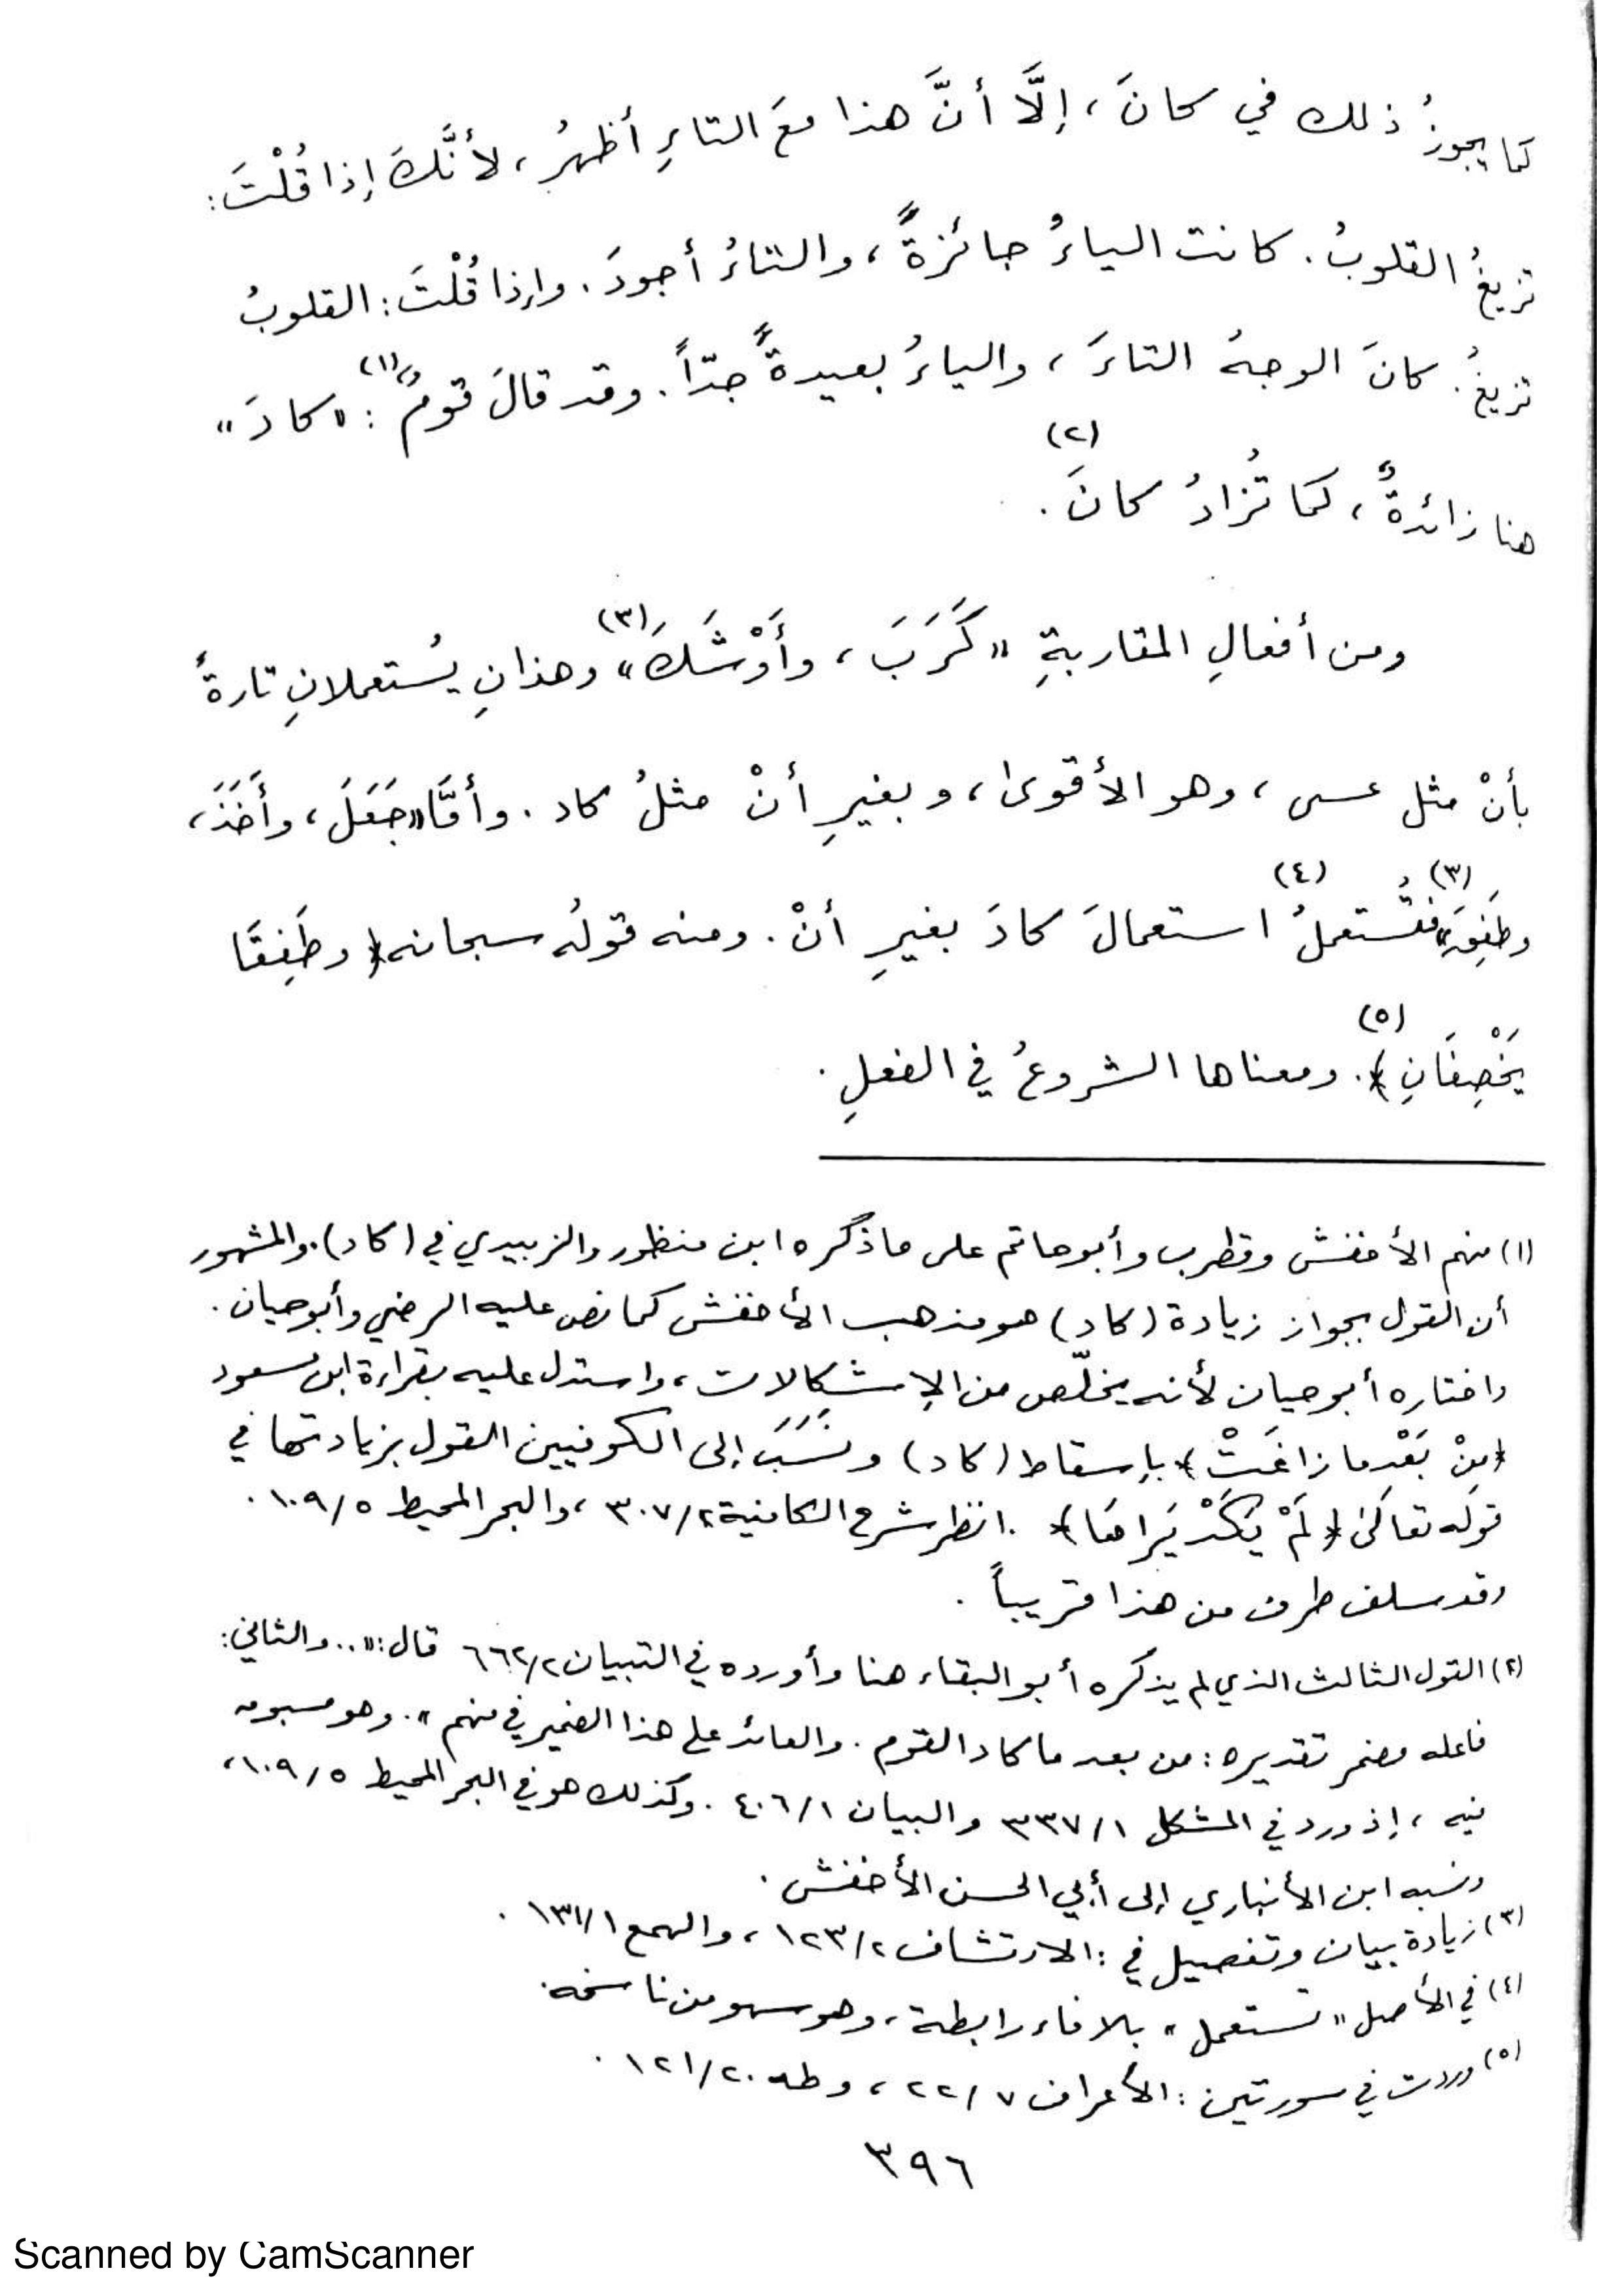 كما يجوزُ ذلك في كانَ، إلَّا أنَّ هذا معَ التاءِ أظهرُ، لأنَّكَ إذا قُلْتَ:
تزيغُ القلوبُ. كانت الياءُ جائزةً، والتاءُ أجودَ. وإذا قُلْتَ: القلوبُ
تزيغُ. كانَ الوجهُ التاءَ، والياءُ بعيدةً جدّاً. وقد قالَ قومٌ(١): «كادَ»
هنا زائدةٌ، كما تُزادُ كانَ(٢).
ومن أفعالِ المقاربةِ «كَرَبَ، وأَوْشَكَ»(٣) وهذانِ يُستعملانِ تارةً
بأنْ مثل عسى، وهو الأقوى، وبغيرِ أنْ مثلُ كاد. وأمَّا «جَعَلَ، وأَخَذَ،
وطَفِقَ»(٣) فتُستعملُ(٤) استعمالَ كادَ بغيرِ أنْ. ومنه قولُه سبحانه ﴿وطَفِقَا
يَخْصِفَانِ﴾(٥). ومعناها الشروعُ في الفعلِ.
(١) منهم الأخفش وقطرب وأبوحاتم على ماذكره ابن منظور والزبيدي في (كاد). والمشهور
أن القول بجواز زيادة (كاد) هو مذهب الأخفش كما نص عليه الرضي وأبوحيان.
واختاره أبو حيان لأنه يخلّص من الإشكالات، واستدل عليه بقراءة ابن مسعود
﴿مِنْ بَعْدِ ما زاغَتْ﴾ بإسقاط (كاد) ونَسَبَ إلى الكوفيين القول بزيادتها في
قوله تعالى ﴿لَمْ يَكَدْ يَرَاهَا﴾. انظر شرح الكافية ٣٠٧/٢، والبحر المحيط ١٠٩/٥.
وقد سلف طرف من هذا قريباً.
(٢) القول الثالث الذي لم يذكره أبو البقاء هنا وأورده في التبيان ٦٦٢/٢ قال: «.. والثاني:
فاعله مضمر تقديره: من بعد ما كاد القوم. والعائد على هذا الضمير في منهم». وهو مسبوق
فيه، إذ ورد في المشكل ٣٣٧/١ والبيان ٤٠٦/١. وكذلك هو في البحر المحيط ١٠٩/٥،
ونسبه ابن الأنباري إلى أبي الحسن الأخفش.
(٣) زيادة بيان وتفصيل في: الارتشاف ١٢٣/٢، والهمع ١٣١/١.
(٤) في الأصل «تستعمل» بلا فاء رابطة، وهو سهو من ناسخه.
(٥) وردت في سورتين: الأعراف ٢٢/٧، وطه ١٢١/٢٠.
٣٩٦
Scanned by CamScanner